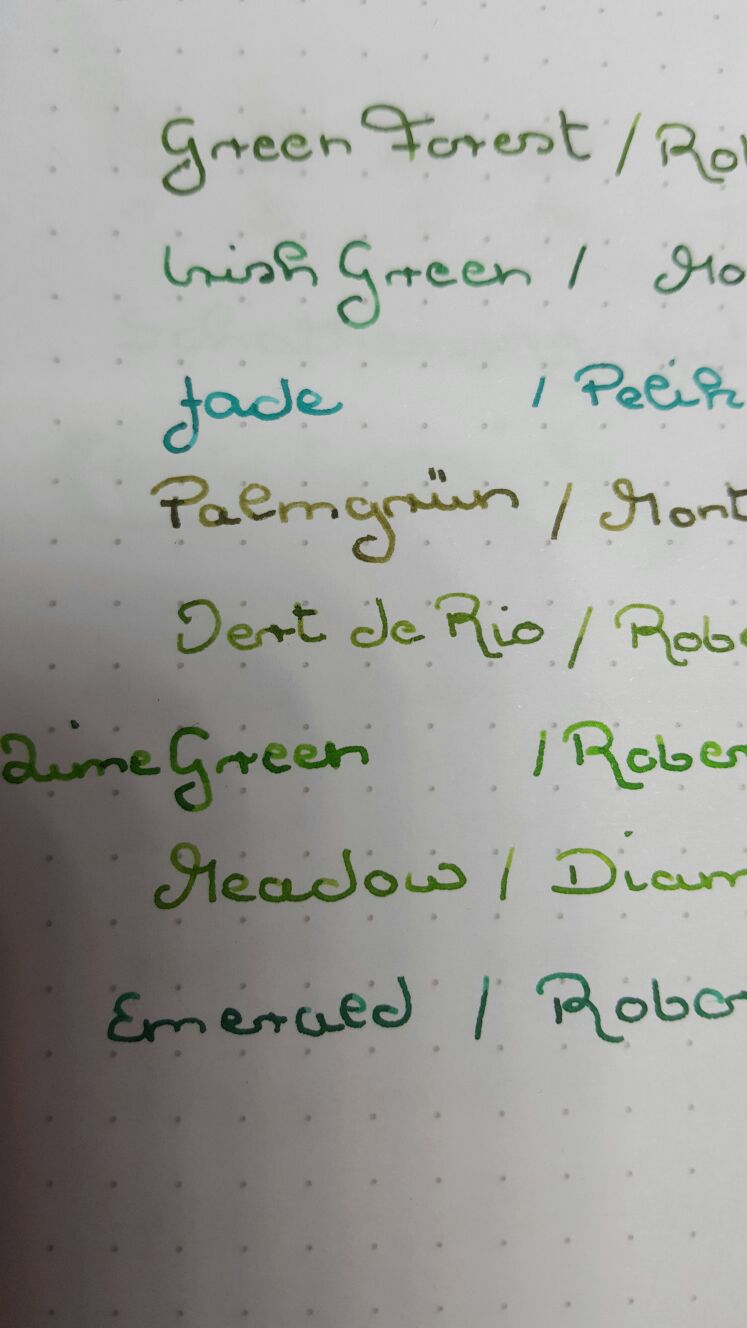 Green Forest / Rob
Irish Green / Mo
Jade / Pelik
Palmgrün / Mont
Vert de Rio / Robe
Lime Green / Rober
Meadow / Diam
Emerald / Rober